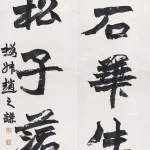 石華生
松子落
撝叔趙之謙